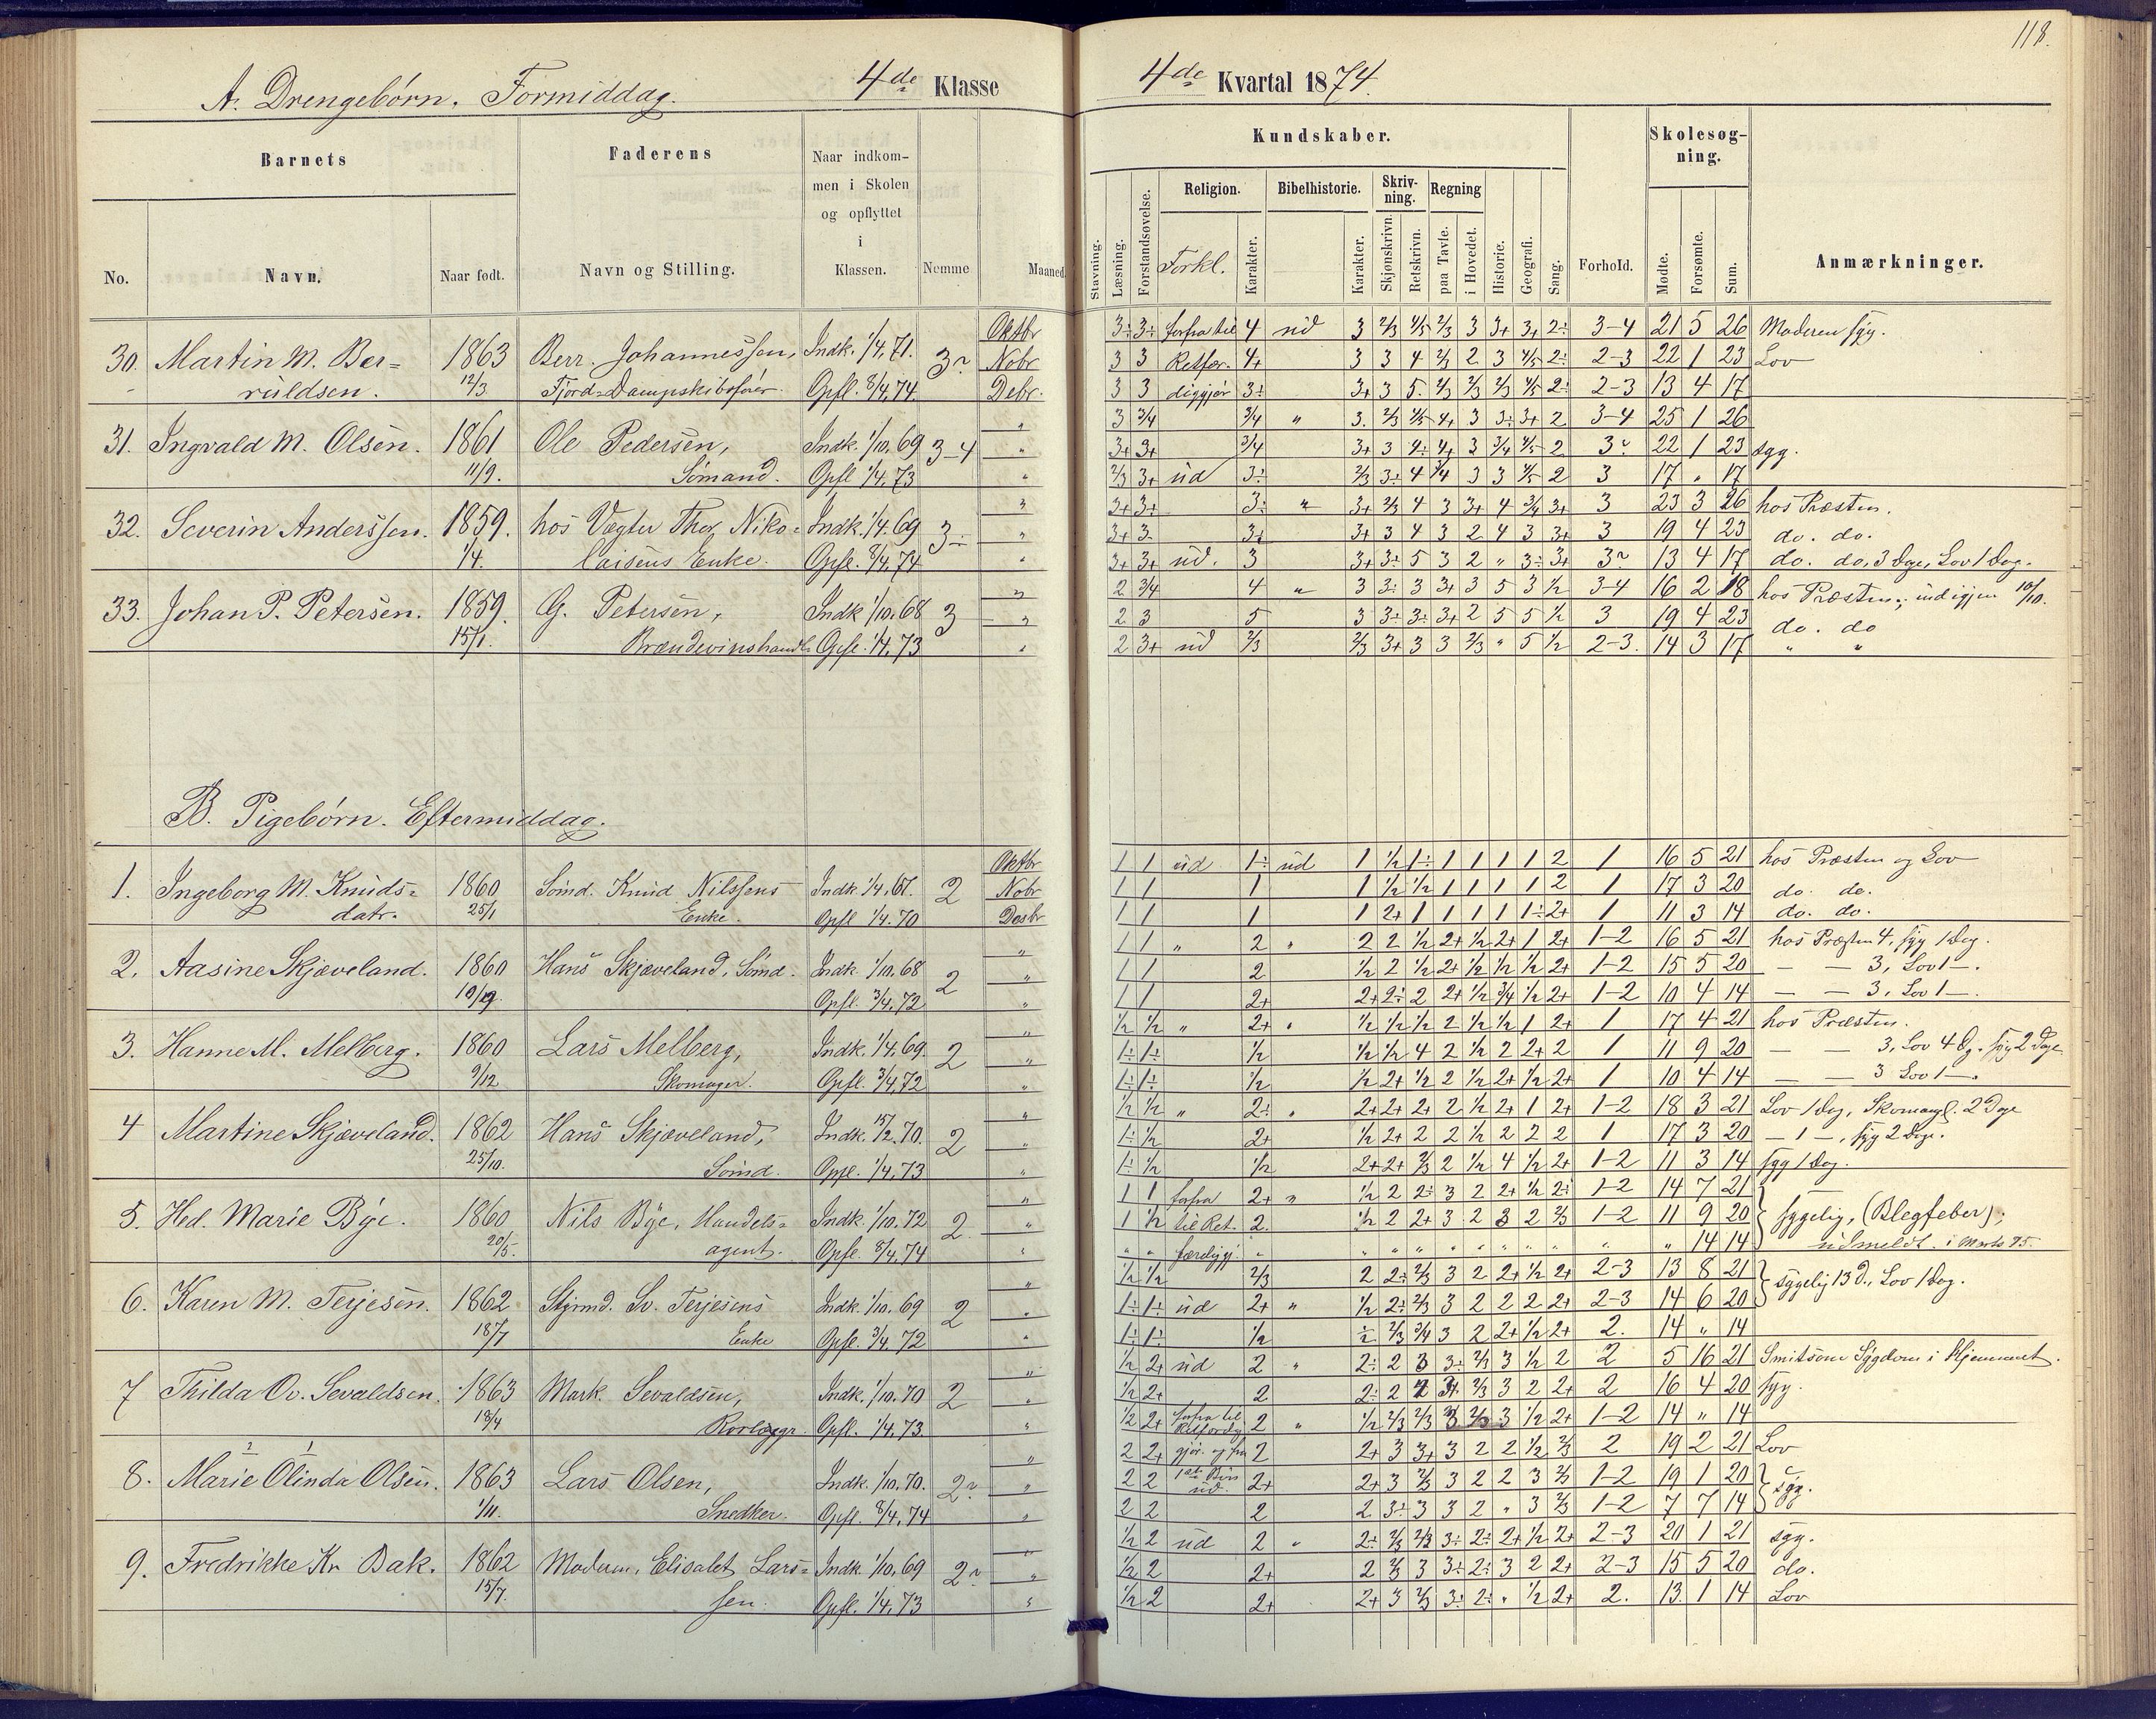 118.
A. Drengebørn. Formiddag. 4de Klasse
4de Kvartal 1874.
Barnets
Faderens
Naar indkom-
men i Skolen
og opflyttet
i
Klassen.
No.
Navn.
Naar født.
Navn og Stilling.
Nemme
Maaned.
Kundskaber.
Skolesøg-
ning.
Stavning.
Læsning.
Forstandsøvelse.
Religion.
Forkl.
Karakter.
Bibelhistorie.
Karakter.
Skriv-
ning.
Skjønskrivn.
Retskrivn.
Regning
paa Tavle.
i Hovedet.
Historie.
Geografi.
Sang.
Forhold.
Mødte.
Forsømte.
Sum.
Anmærkninger.
30. Martin M. Ber= 1863 Berr. Johannesssen, Indk. 1/4, 71. Oktbr
3÷ 3÷ forfra til 4 ud 3 2/3 4/5 2/3 3 3+ 3+ 2÷ 3-4 21 5 26 Moderen syg.
Nobr 3 3 Retfær- 4+ 3 3 4 2/3 2 3 4/5 2÷ 2-3 22 1 23 Lov
ruldsen. 12/3 Fjord-Dampskibsfører. Opfl. 8/4, 74. Debr.
3 3 diggjør 3÷ 3+ 3 5. 2/3 2/3 2/3 4/5 2÷ 2-3 13 4 17
3 3/4 3/4 " 3. 2/3 4/5 4+ 3 3÷ 3+ 2 3-4 25 1 26
31. Ingvald M. Olsen. 1861 Ole Pedersen, Indk. 1/10, 69 3-4
3+ 3+ 3/4 3+ 3 4÷ 4+ 3 3/4 4/5 2 22 1 23 syg.
11/9. Sømand. Opfl 1/4, 73
2/3 3+ ud 3÷ 2/3 3÷ 4 3/4 3 3 4/5 2 3 17 " 17
3+ 3+ 3÷ " 3+ 2/3 4 3 3+ 4 3/4 3+ 3 23 3 26 hos Præsten.
32. Severin Anderssen. 1859. hos Vægter Thor Niko= Indk. 1/4. 69 3÷
3+ 3 3+ 3+ 3 4 3 2 4 3 3+ 3 19 4 23 do. do.
1/4. laisens Enke. Opfl. 8/4, 74
3+ 3+ ud. 3 3+ 3÷ 5 3 2 " 3÷ 3+ 13 4 17 do. do, 3 Dage, Lov 1 Dag.
2 3/4 4 " 3 3÷ 3 3+ 3 5 3 1/2 3-4 16 2 18 hos Præsten; ind igjen 10/10.
33. Johan P. Petersen. 1859. G. Petersen, Indk 1/10, 68 3
2 3 5 3 3÷ 3÷ 3+ 2 5 5 1/2 3 19 4 23 do. do
15/1. Brændevinshandl. Opfl. 1/4, 73
2 3+ ud 2/3 2/3 3+ 3 3 2/3 " 5 1/2 2-3. 14 3 17 " "
B. Pigebørn. Eftermiddag.
Oktbr 1 1 ud 1÷ ud 1 1/2 1÷ 1 1 1 1 2 1 16 5 21 hos Præsten og Lov
1. Ingeborg M. Knuds= 1860 Sømd. Knud Nilssens Indk. 1/4, 67. 2 Nobr
1 1 1 1 1/2 1/2 1 1 1 1 2 1 17 3 20 do. do.
datr. 25/1 Enke. Opfl 1/4. 70 Desbr
1 1 1 1 2+ 1 1 1 1 1÷ 2+ 1 11 3 14 do. do.
1 1 " 2 " 2 2 1/2 2+ 1/2 2+ 1 2+ 1-2 16 5 21 hos Præsten 4, syg 1 Dag.
2. Aasine Skjæveland. 1860 Hans Skjæveland, Sømd. Indk. 1/10. 68 2
1 1 2 1/2 2 1/2 2+ 1/2 1/2 1/2 2+ 1-2 15 5 20 — — 3, Lov 1 —.
Opfl. 3/4, 72
1 1 2+ 2+ 2÷ 2 2+ 1/2 3/4 1/2 2+ 1-2 10 4 14 — — 3, Lov 1 —.
1/2 1/2 " 2+ " 1/2 1/2 1/2 2 1/2 1/2 1 2+ 1 17 4 21 hos Præsten.
3. Hanne M. Melberg. 1860 Lars Melberg, Indk. 1/4, 69. 2
1÷ 1÷ 1/2 1/2 1/2 4 2 1/2 2 2+ 2 1 11 9 20 — — 3, Lov 4 Dg. syg 2 Dage
9/12 Skomager. Opfl. 3/4, 72
1÷ 1÷ 1/2 1/2 2+ 1/2 2 1/2 2+ 1/2 2+ 1 10 4 14 — — 3 Lov 1 —.
1/2 1/2 " 2÷ " 2+ 2+ 2+ 2 1/2 2+ 1 2+ 1-2 18 3 21 Lov 1 Dag, Skomangl. 2 Dage
4 Martine Skjæveland. 1862 Hans Skjæveland, Indk. 15/2. 70. 2
1÷ 1/2 2+ 1/2 2+ 2 2 1/2 2 2 2 1 17 3 20 — 1 —, syg 2 Dage.
25/10. Sømd. Opfl. 1/4, 73
1÷ 1/2 1/2 2+ 2+ 2/3 2 1/2 4 1/2 2+ 1-2 11 3 14 syg 1 Dag.
1 1 forfra 2+ " 1/2 2 2÷ 3 2 2+ 1/2 2÷ 1-2 14 7 21
5. Hed. Marie Bye. 1860 Nils Bye, Handels= Indk. 1/10, 72 2.
1 1/2 til Ret- 2. 1/2 2 2+ 3 2 3 2 2/3 1-2 11 9 20 sygelig, (Blegfeber);
20/5. agent. Opfl. 8/4, 74
" " færdiggj. " " " " " " " " " " " 14 14 udmeldt i Marts 75.
1/2 1/2 2/3 2 2÷ 2/3 3 2 2+ 1/2 2+ 2-3 13 8 21
6. Karen M. Terjesen. 1862 Styrmd. Sv. Terjesens Indk. 1/10. 69 2
1÷ 1÷ ud 2+ " 1/2 2÷ 2/3 3 2 2 2 2+ 2-3 14 6 20 sygelig 13 d., Lov 1 Dag.
18/7 Enke Opfl. 3/4, 72
1÷ 1÷ 1/2 1/2 2/3 3/4 3 2 2+ 1/2 2+ 2. 14 " 14
1/2 2+ ud 2 " 2÷ 2 3 3÷ 2/3 3 1/2 2 2 5 16 21 Smitsom Sygdom i Hjemmet.
7 Thilda Ov. Sevaldsen. 1863 Mark. Sevaldsen, Indk. 1/10. 70 2
1/2 2+ 2 2÷ 2 2 3+ 2/3 3 2 2+ 2 16 4 20 syg.
18/4 Opfl. 1/4, 73
1/2 2+ forfra til Retfærdig 2 " 1/2 2/3 2/3 3 2/3 3 1/2 2+ 1-2 14 " 14
2 2+ gjør. og fra 2 2+ 3 3+ 3 2 2 1/2 2/3 2 19 2 21 Lov
8. Marie Olinda Olsen. 1863 Lars Olsen, Indk. 1/10, 70.
2 2 1ste Bøn ud. 2+ 2+ 3 2/3 3 2 2 3 2/3 1-2 19 1 20 syg.
1/11. Snedker. Opfl. 8/4, 74
2 2 2 2 3÷ 3 3 2 " 3 2/3 1-2 7 7 14
1/2 2 ud 2 " 2÷ 2/3 2/3 3÷ 2÷ 2+ 1/2 2+ 2-3 20 1 21 syg.
9. Fredrikke Kr. Bak. 1862 Moderen, Elisabet Lars= Indk. 1/10, 69
1/2 2 2+ 2 2/3 3 3÷ 2÷ 3 2 2+ 2-3 15 5 20 do.
15/7. sen. Opfl. 1/4, 73
1/2 2 2+ 2+ 3 2/3 3÷ 2÷ " 1/2 2+ 2. 13. 1 14 Lov